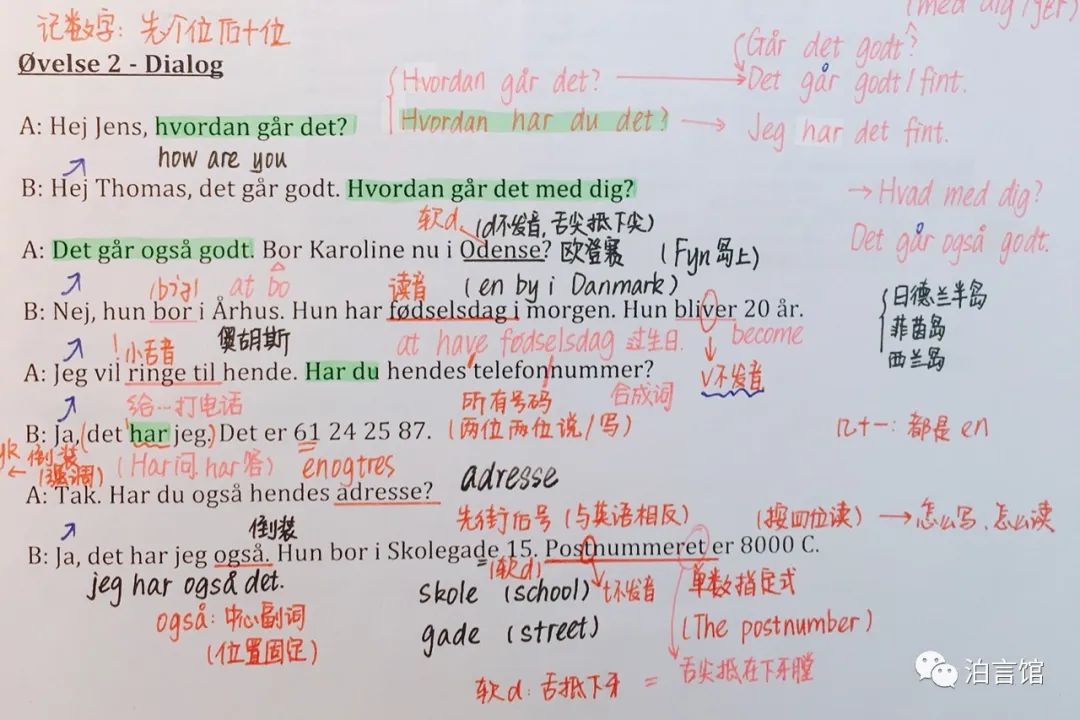 (med dig/jer)
记数字：先个位后十位
Går det godt?
Øvelse 2 - Dialog
Hvordan går det?
Det går godt/fint.
A: Hej Jens, hvordan går det?
Hvordan har du det?
Jeg har det fint.
how are you
B: Hej Thomas, det går godt. Hvordan går det med dig?
→ Hvad med dig?
软d (d不发音,舌尖抵下尖)
A: Det går også godt. Bor Karoline nu i Odense? 欧登赛 (Fyn岛上)
Det går også godt.
at bo
读音
(en by i Danmark)
日德兰半岛
B: Nej, hun bor i Århus. Hun har fødselsdag i morgen. Hun bliver 20 år.
菲茵岛
小舌音
奥胡斯
at have fødselsdag 过生日.
become
西兰岛
A: Jeg vil ringe til hende. Har du hendes telefonnummer?
V不发音
给…打电话
所有号码
合成词
B: Ja, (det har jeg.) Det er 61 24 25 87. (两位两位说/写)
几十一：都是en
倒装
(强调)
(Har问.har答)
enogtres
A: Tak. Har du også hendes adresse?
adresse
倒装
先街后号 (与英语相反)
(按四位读) → 怎么写、怎么读
B: Ja, det har jeg også. Hun bor i Skolegade 15. Postnummeret er 8000 C.
jeg har også det.
(软d)
skole (school)
t不发音
单数指定式
også: 中心副词
gade (street)
(The postnumber)
(位置固定)
软d：舌抵下牙 = 舌尖抵在下牙膛
泊言馆